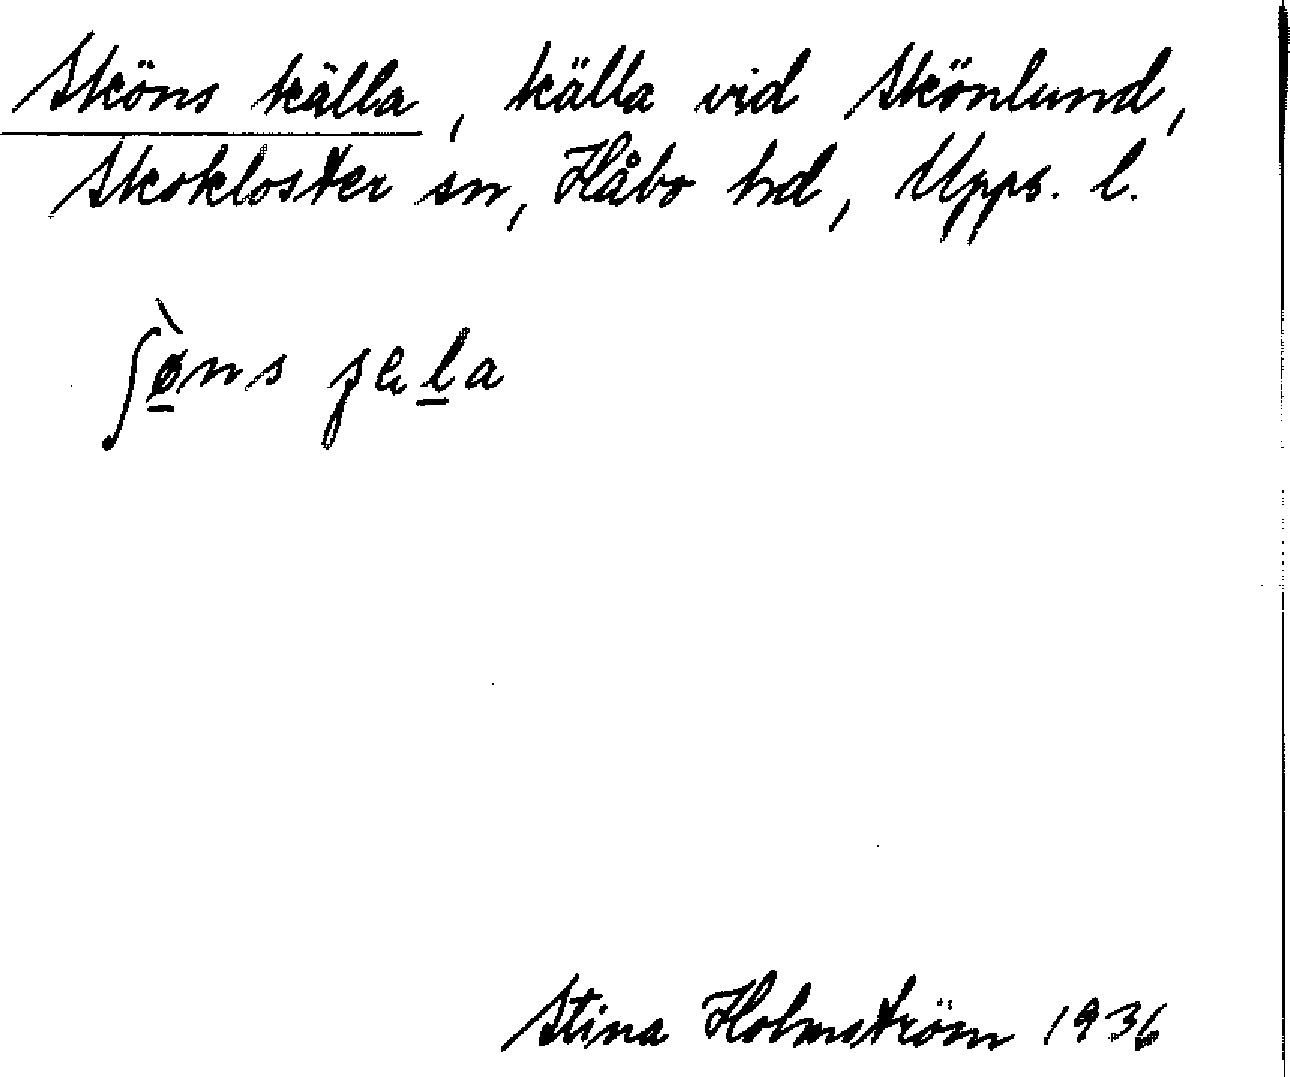 Sköns källa, källa vid Skönlund,
Skokloster sn, Håbo hd, Upps. l.
ʃø̱̀ns ɟeḻa
Stina Holmström 1936